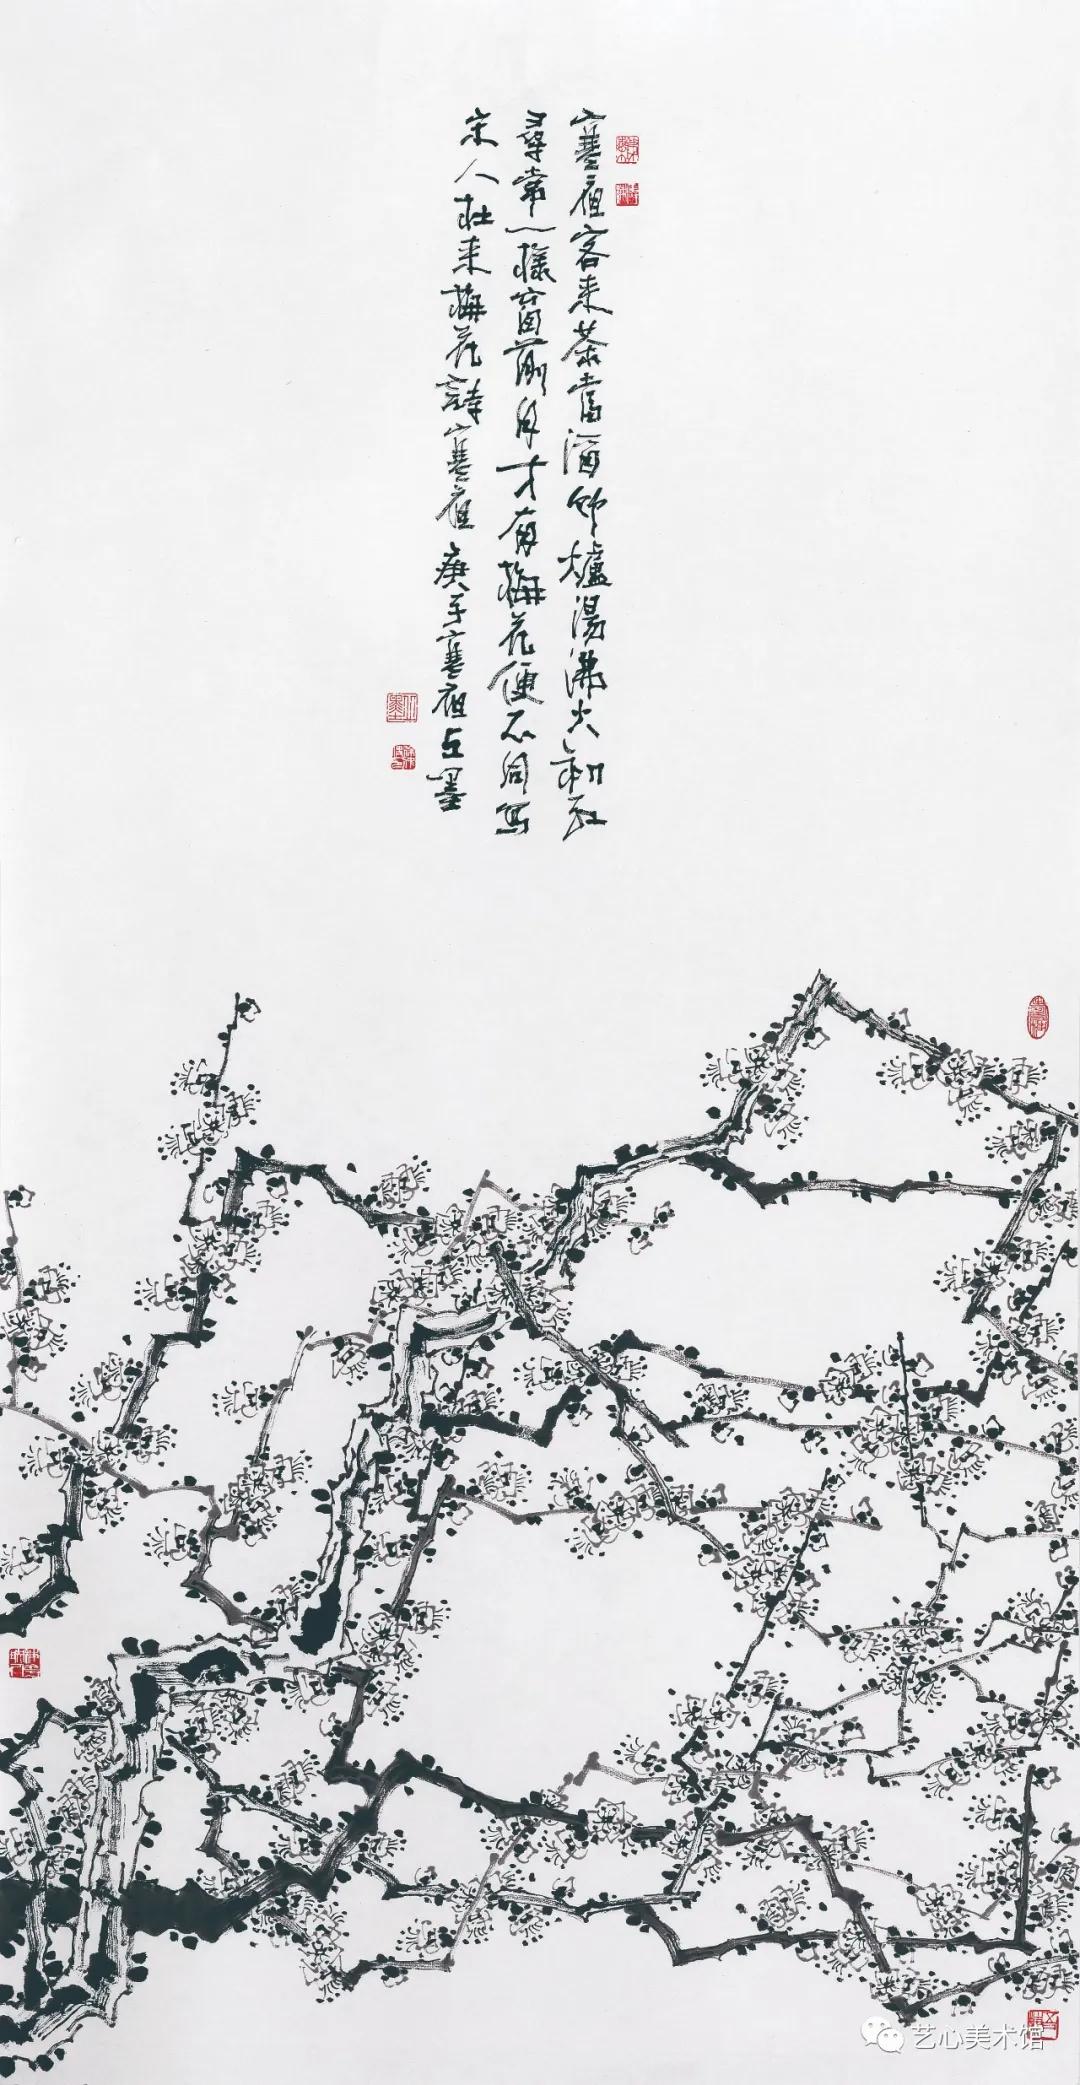 寒夜客来茶当酒竹炉汤沸火初红
寻常一样窗前月才有梅花便不同写
宋人杜来梅花诗寒夜 庚子寒夜丘墨
艺心美术馆